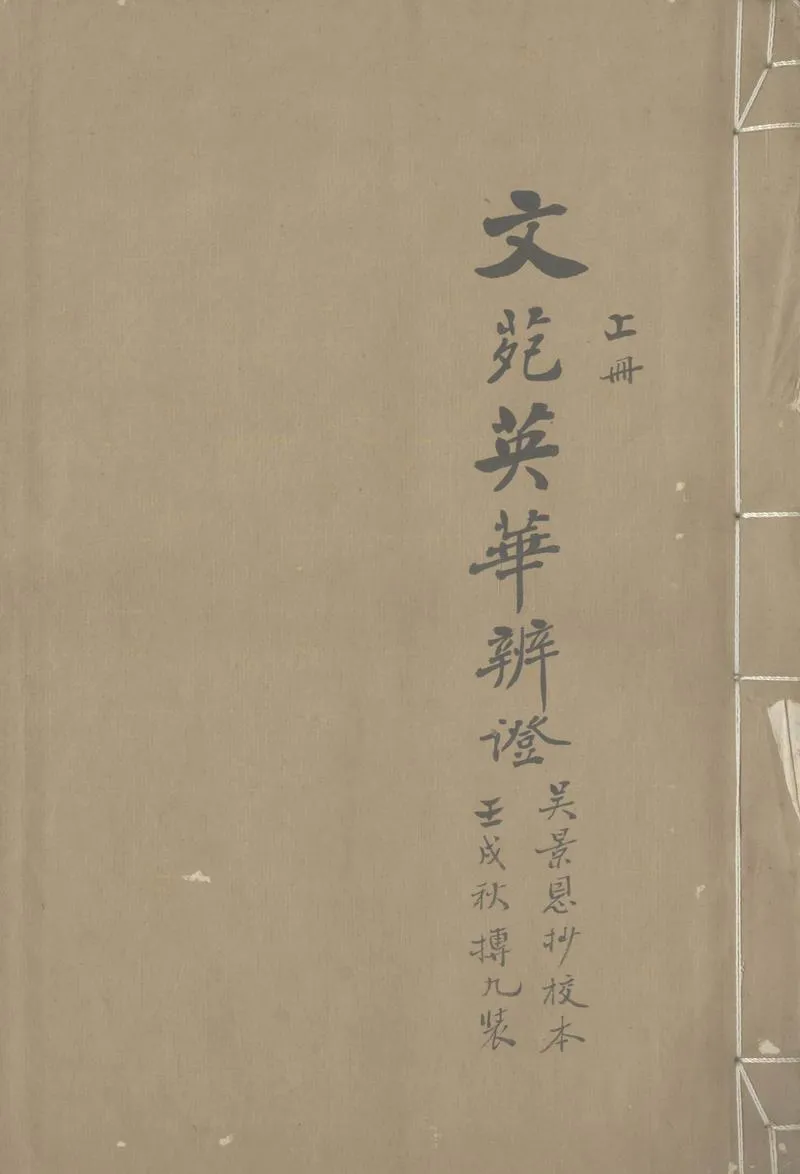 上冊
文苑英華辨證
吴景恩抄校本
壬戌秋摶九裝